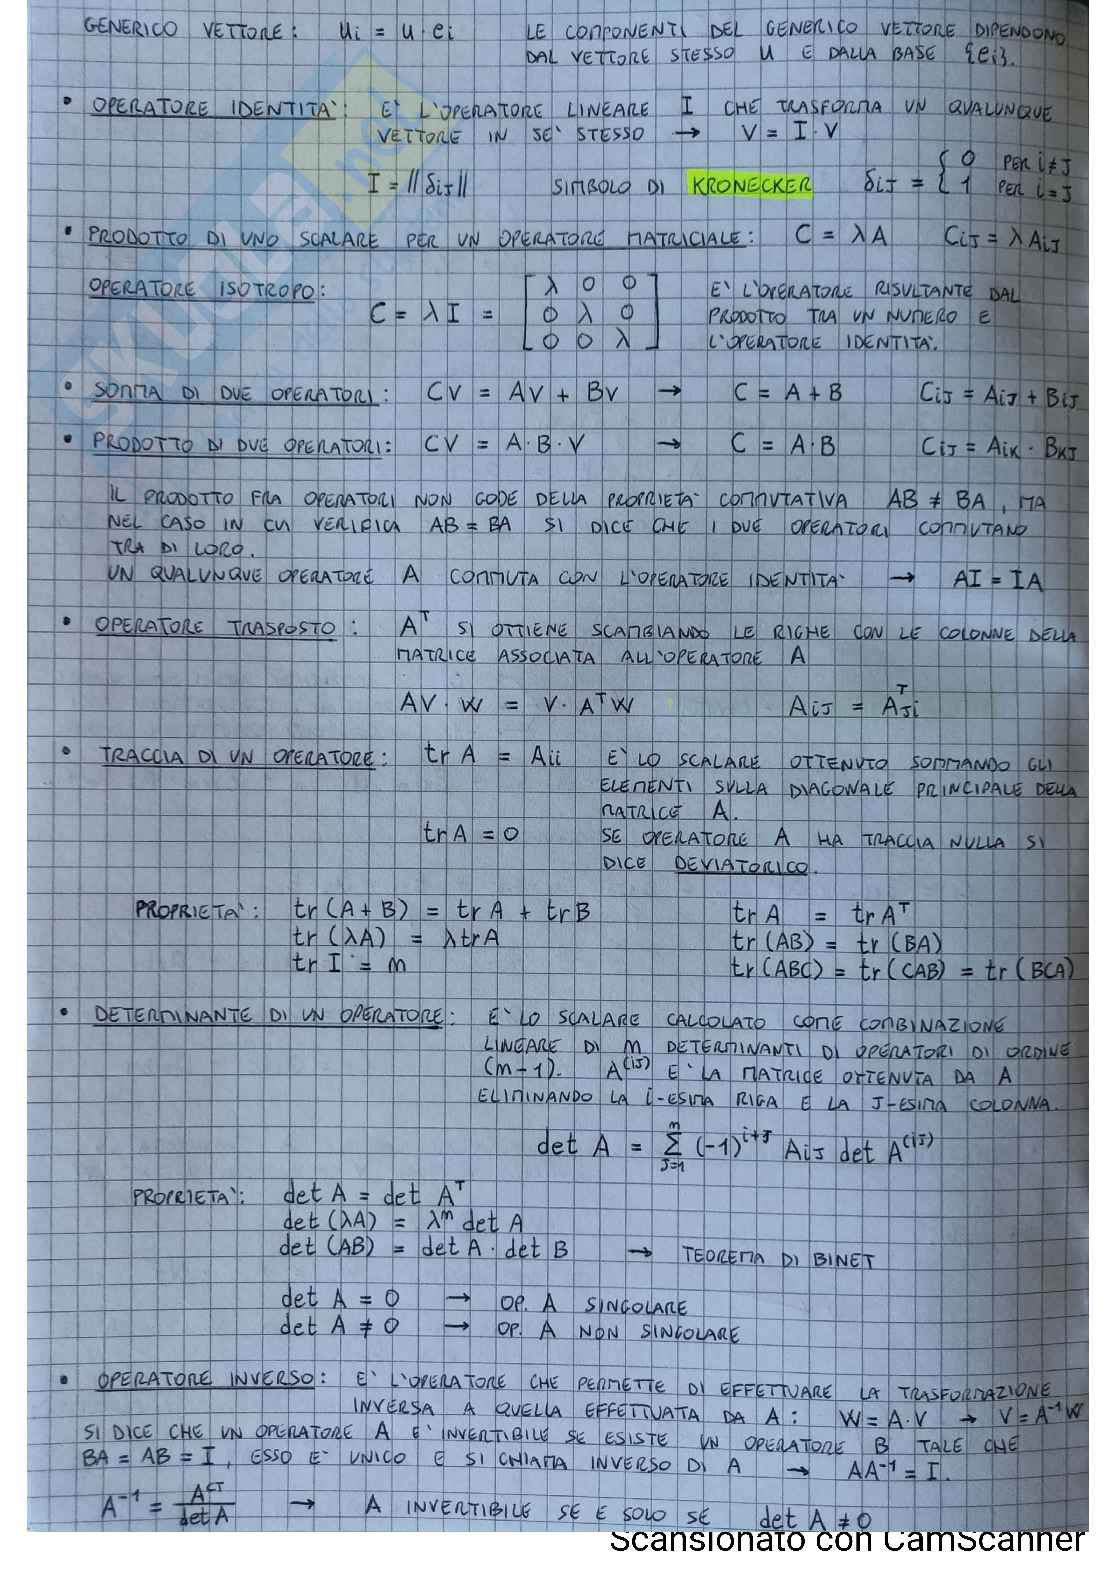 GENERICO VETTORE: ui = u · ei LE COMPONENTI DEL GENERICO VETTORE DIPENDONO
DAL VETTORE STESSO u E DALLA BASE {ei}.
• OPERATORE IDENTITA': E' L'OPERATORE LINEARE I CHE TRASFORMA UN QUALUNQUE
VETTORE IN SE' STESSO → V = I · V
I = || δiJ || SIMBOLO DI KRONECKER δiJ = { 0 PER i ≠ J
1 PER i = J
• PRODOTTO DI UNO SCALARE PER UN OPERATORE MATRICIALE: C = λA CiJ = λAiJ
OPERATORE ISOTROPO: C = λI = [ λ 0 0 E' L'OPERATORE RISULTANTE DAL
0 λ 0 PRODOTTO TRA UN NUMERO E
0 0 λ ] L'OPERATORE IDENTITA'.
• SOMMA DI DUE OPERATORI: CV = AV + BV → C = A + B CiJ = AiJ + BiJ
• PRODOTTO DI DUE OPERATORI: CV = A · B · V → C = A · B CiJ = AiK · BKJ
IL PRODOTTO FRA OPERATORI NON GODE DELLA PROPRIETA' COMMUTATIVA AB ≠ BA, MA
NEL CASO IN CUI VERIFICA AB = BA SI DICE CHE I DUE OPERATORI COMMUTANO
TRA DI LORO.
UN QUALUNQUE OPERATORE A COMMUTA CON L'OPERATORE IDENTITA' → AI = IA
• OPERATORE TRASPOSTO: Aᵀ SI OTTIENE SCAMBIANDO LE RIGHE CON LE COLONNE DELLA
MATRICE ASSOCIATA ALL'OPERATORE A
AV · W = V · AᵀW AiJ = AᵀJi
• TRACCIA DI UN OPERATORE: tr A = Aii E' LO SCALARE OTTENUTO SOMMANDO GLI
ELEMENTI SULLA DIAGONALE PRINCIPALE DELLA
MATRICE A.
tr A = 0 SE OPERATORE A HA TRACCIA NULLA SI
DICE DEVIATORICO.
PROPRIETA': tr (A + B) = tr A + tr B tr A = tr Aᵀ
tr (λA) = λ tr A tr (AB) = tr (BA)
tr I = m tr (ABC) = tr (CAB) = tr (BCA)
• DETERMINANTE DI UN OPERATORE: E' LO SCALARE CALCOLATO COME COMBINAZIONE
LINEARE DI m DETERMINANTI DI OPERATORI DI ORDINE
(m-1). A^(iJ) E' LA MATRICE OTTENUTA DA A
ELIMINANDO LA i-ESIMA RIGA E LA J-ESIMA COLONNA.
det A = Σ_{J=1}^{m} (-1)^{i+J} AiJ det A^(iJ)
PROPRIETA': det A = det Aᵀ
det (λA) = λᵐ det A
det (AB) = det A · det B → TEOREMA DI BINET
det A = 0 → OP. A SINGOLARE
det A ≠ 0 → OP. A NON SINGOLARE
• OPERATORE INVERSO: E' L'OPERATORE CHE PERMETTE DI EFFETTUARE LA TRASFORMAZIONE
INVERSA A QUELLA EFFETTUATA DA A: W = A · V → V = A⁻¹W
SI DICE CHE UN OPERATORE A E' INVERTIBILE SE ESISTE UN OPERATORE B TALE CHE
BA = AB = I, ESSO E' UNICO E SI CHIAMA INVERSO DI A → AA⁻¹ = I.
A⁻¹ = A^CT / det A → A INVERTIBILE SE E SOLO SE det A ≠ 0
Scansionato con CamScanner